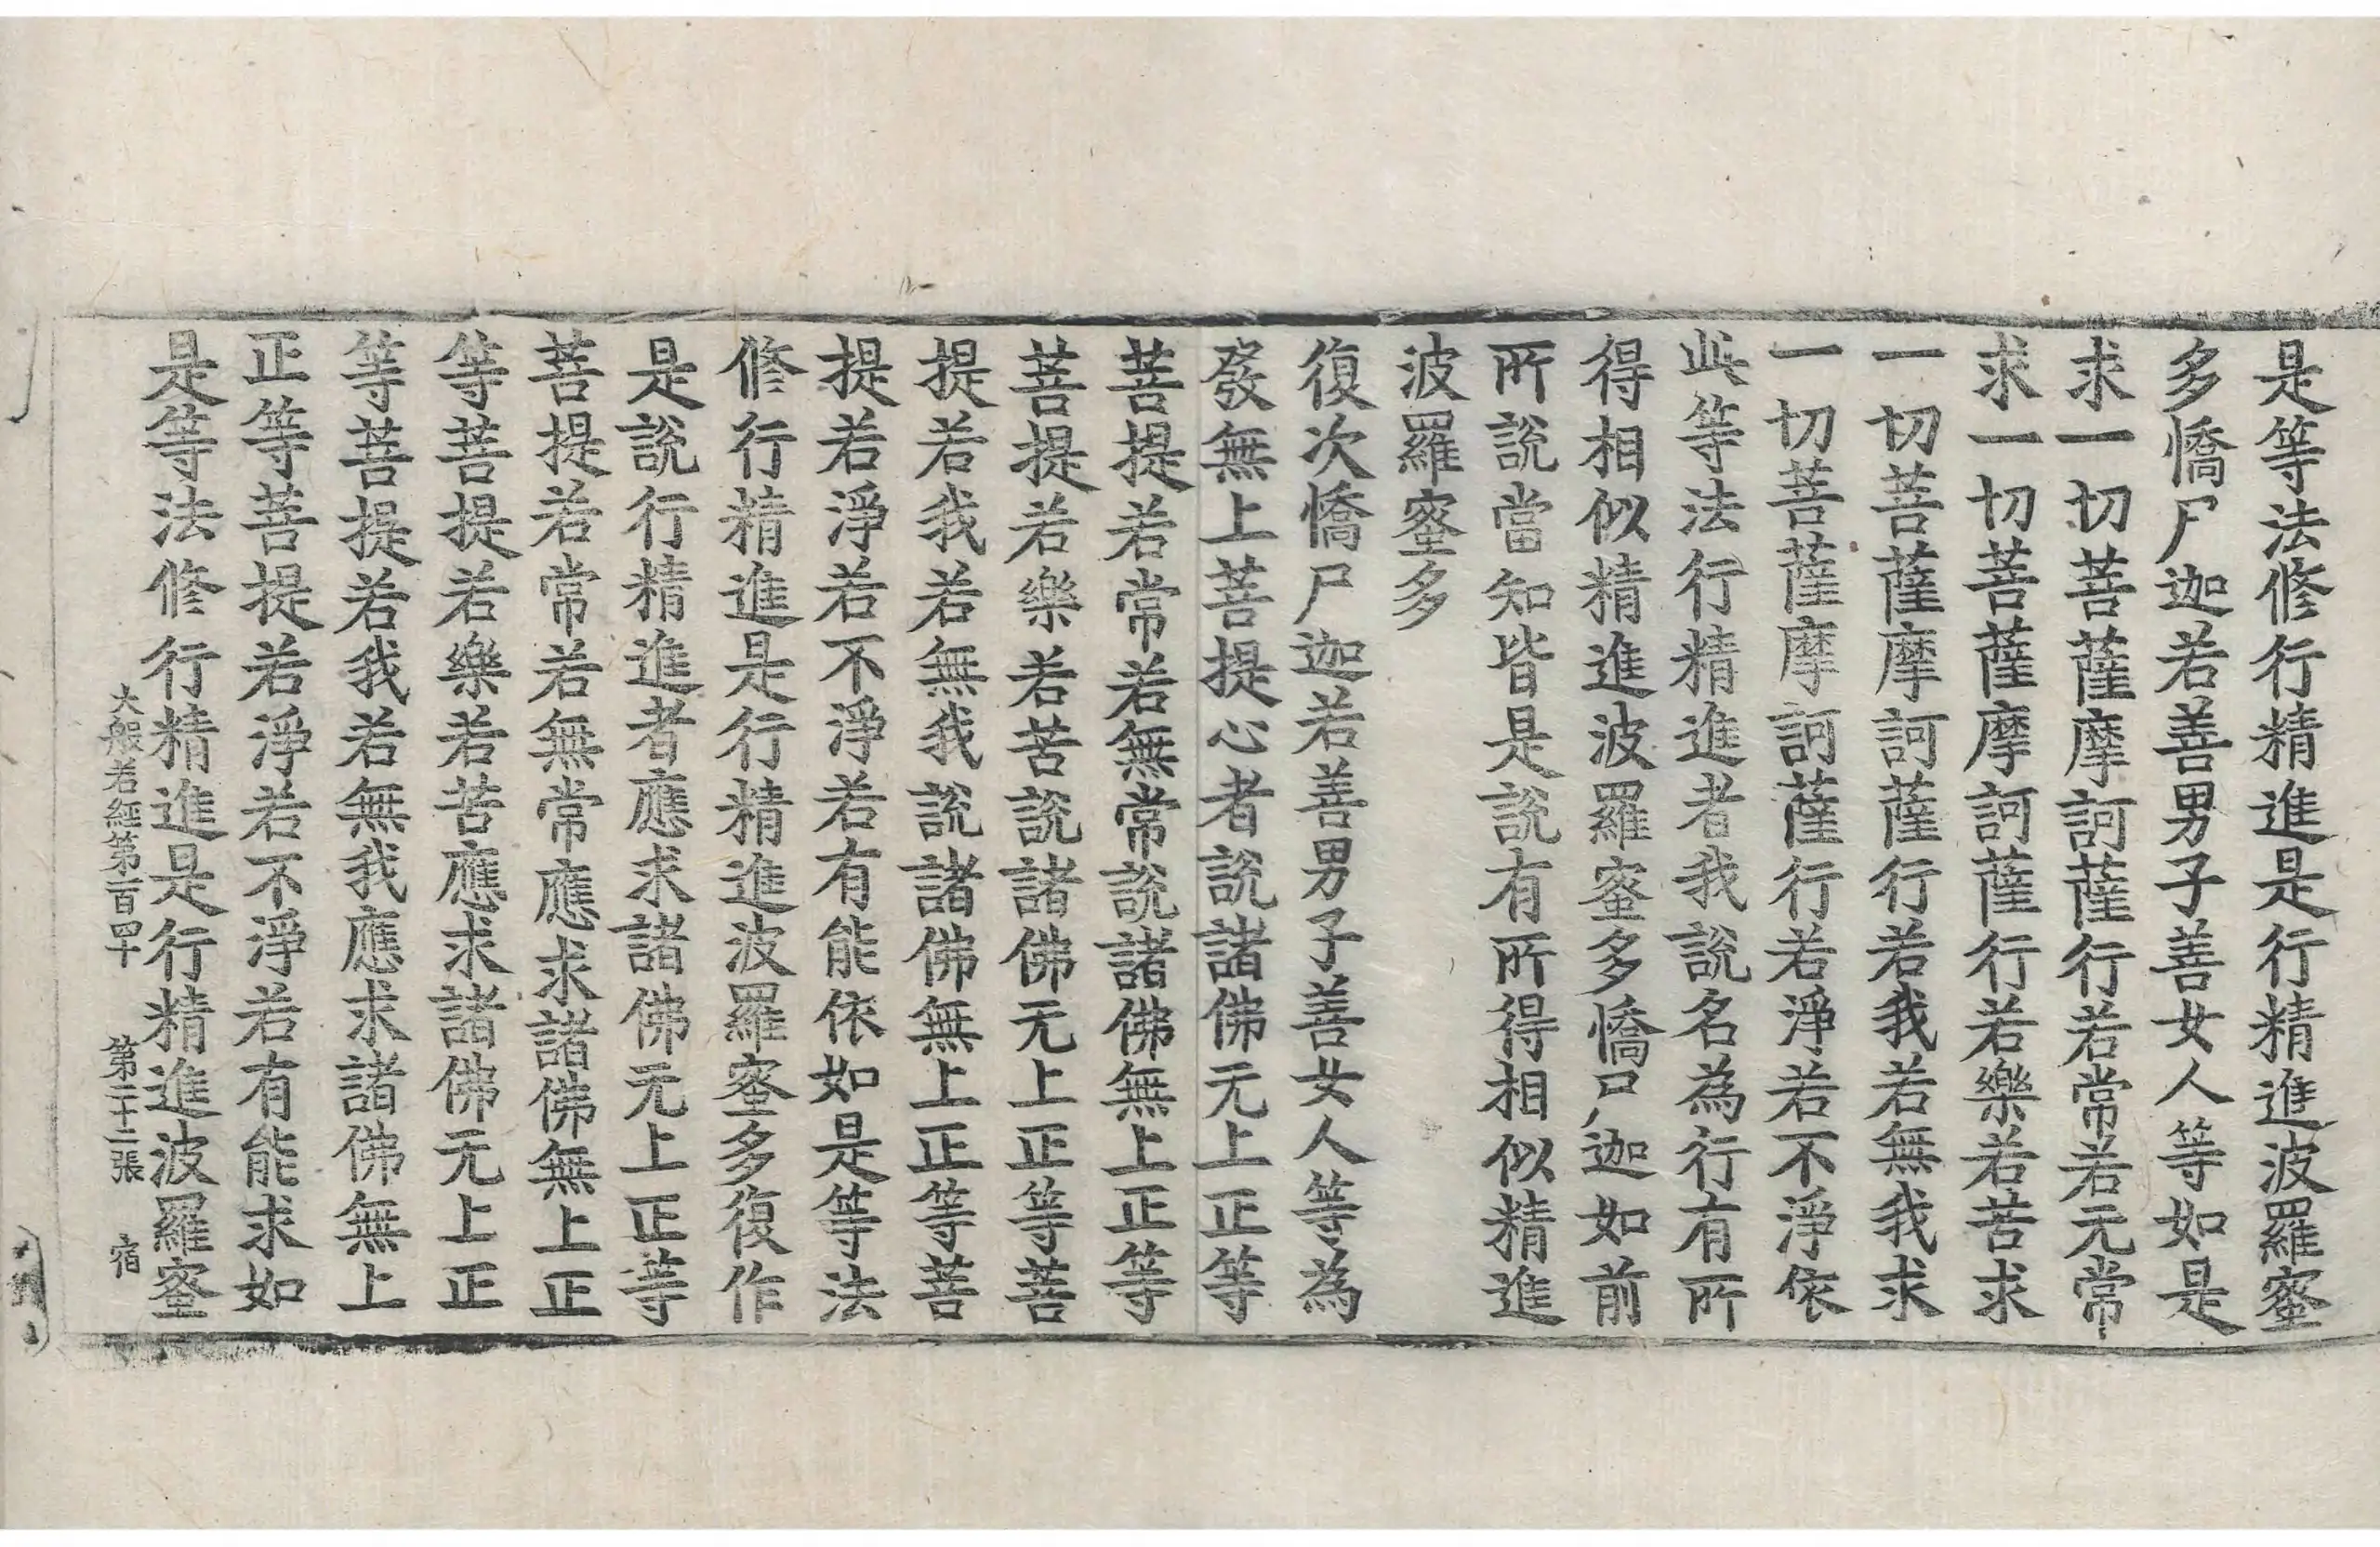 是等法修行精進是行精進波羅蜜
多憍尸迦若善男子善女人等如是
求一切菩薩摩訶薩行若常若元常
求一切菩薩摩訶薩行若樂若苦求
一切菩薩摩訶薩行若我若無我求
一切菩薩摩訶薩行若淨若不淨依
此等法行精進者我說名為行有所
得相似精進波羅蜜多憍尸迦如前
所說當知皆是說有所得相似精進
波羅蜜多
復次憍尸迦若善男子善女人等為
發無上菩提心者說諸佛元上正等
菩提若常若無常說諸佛無上正等
菩提若樂若苦說諸佛元上正等菩
提若我若無我說諸佛無上正等菩
提若淨若不淨若有能依如是等法
修行精進是行精進波羅蜜多復作
是說行精進者應求諸佛元上正等
菩提若常若無常應求諸佛無上正
等菩提若樂若苦應求諸佛元上正
等菩提若我若無我應求諸佛無上
正等菩提若淨若不淨若有能求如
是等法修行精進是行精進波羅蜜
大般若經第一百四十 第二十二張 宿